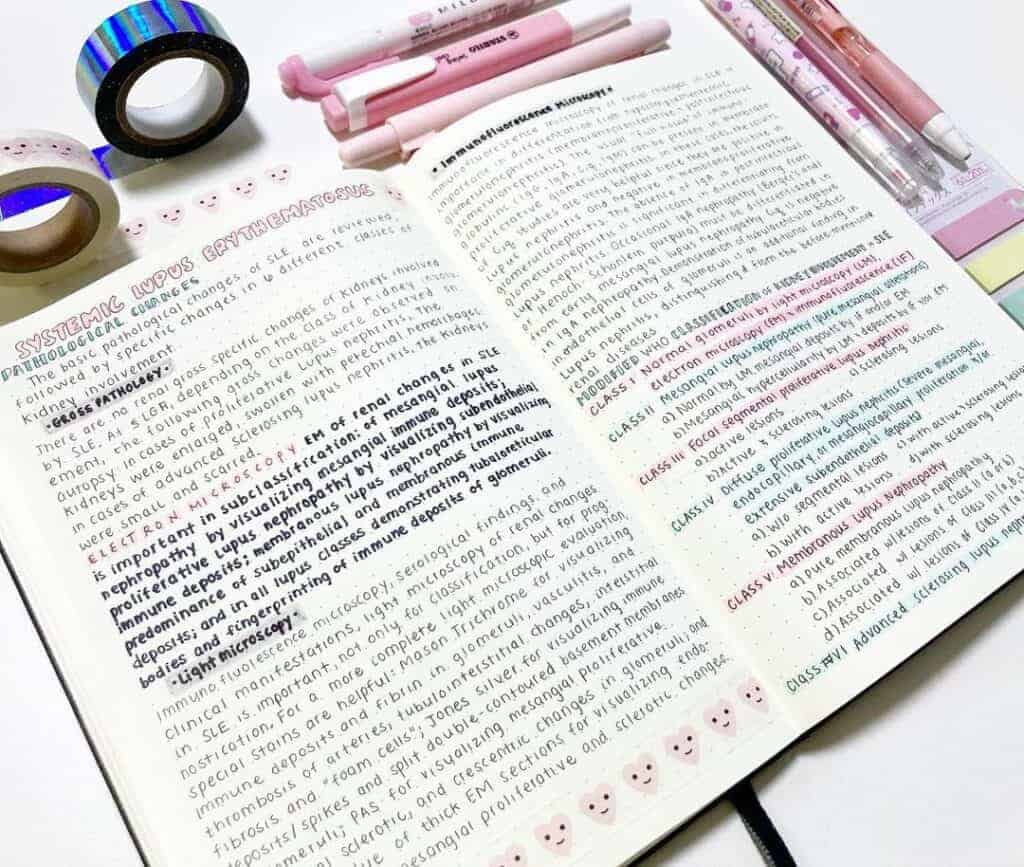 SYSTEMIC LUPUS ERYTHEMATOSUS
PATHOLOGICAL CHANGES
The basic pathological changes of SLE are reviewed,
followed by specific changes in 6 different classes of
kidney involvement
• GROSS PATHOLOGY •
There are no renal gross specific changes of kidneys involved
by SLE. At LGR, depending on the class of kidney involv
ement, the following gross changes were observed in
autopsy. In cases of proliferative lupus nephritis. The
kidneys were enlarged, swollen with petechial hemorrhages
in cases of advanced sclerosing lupus nephritis, the kidneys
were small and scarred.
ELECTRON MICROSCOPY EM of renal changes in SLE
is important in subclassification: of mesangial lupus
nephropathy by visualizing mesangial immune deposits;
proliferative lupus nephropathy by visualizing subendothelial
immune deposits; membranous lupus nephropathy by visualizing
predominance of subepithelial and membranous immune
deposits; and in all lupus classes demonstrating tubuloreticular
bodies and fingerprinting of immune deposits of glomeruli.
• Light microscopy •
Immunofluorescence microscopy, serological findings, and
clinical manifestations, light microscopy of renal changes
in SLE is important, not only for classification, but for prog-
nostication. For a more complete light microscopic evaluation
special stains are helpful: Mason Trichrome for visualizing
immune deposits and fibrin in glomeruli, vasculitis, and
thrombosis of arteries, tubulointerstitial changes, interstitial
fibrosis and "foam cells"; Jones silver for visualizing immune
deposits/spikes and split double-contoured basement membranes
glomeruli; PAS for visualizing mesangial proliferative.
sclerotic, and crescentric changes in glomeruli; and
of thick EM sections for visualizing endo-
mesangial proliferative and sclerotic changes
• Immunofluorescence Microscopy •
Immunofluorescence microscopy of renal changes in SLE is
important in differentiation from hypolipidthemic
glomerulonephritis (membranoproliferative, postinfectious
glomerulonephritis). The usual "full house" of immuno-
globulins (IgG, IgA, & IgM) can be present in membrano
proliferative glomerulonephritis, in these cases, the
C1q studies are very helpful since they are positive in
lupus nephritis and negative in membranoproliferative
glomerulonephritis. The absence of IgA in postinfectious
glomerulonephritis is significant in differentiating from
lupus nephritis. Occasional IgA nephropathy (Berger's and
Henoch-Schonlein purpura) must be differentiated
from early mesangial lupus nephropathy. C1q is negative
in IgA nephropathy. Demonstration of tubulovesicular bodies
in endothelial cells of glomeruli is an additional finding in
Lupus nephritis, distinguishing it from the before mentioned
renal diseases.
MODIFIED WHO CLASSIFICATION OF KIDNEY INVOLVEMENT in SLE
CLASS I Normal glomeruli by light microscopy (LM),
electron microscopy (EM) & immunofluorescence (IF)
CLASS II Mesangial lupus nephropathy (pure mesangial alterations)
a) Normal by LM, mesangial deposits by if and/or EM
b) Mesangial hypercellularity by LM & deposits by if /or EM
CLASS III Focal segmental proliferative lupus nephritis
a) active lesions c) sclerosing lesions
b) Active & sclerosing lesions
CLASS IV Diffuse proliferative lupus nephritis (severe mesangial,
endocapillary, or mesangiocapillary proliferation &/or
extensive subendothelial deposits)
a) w/o segmental lesions c) with active & sclerosing lesions
b) with active lesions d) with sclerosing lesions
CLASS V Membranous Lupus Nephropathy
a) pure membranous lupus nephropathy
b) Associated w/lesions of Class II (a or b)
c) Associated w/ lesions of Class III (a, b, c)
d) Associated w/ lesions of Class IV (a, b, c
CLASS VI Advanced sclerosing lupus
MILDL
STABILO